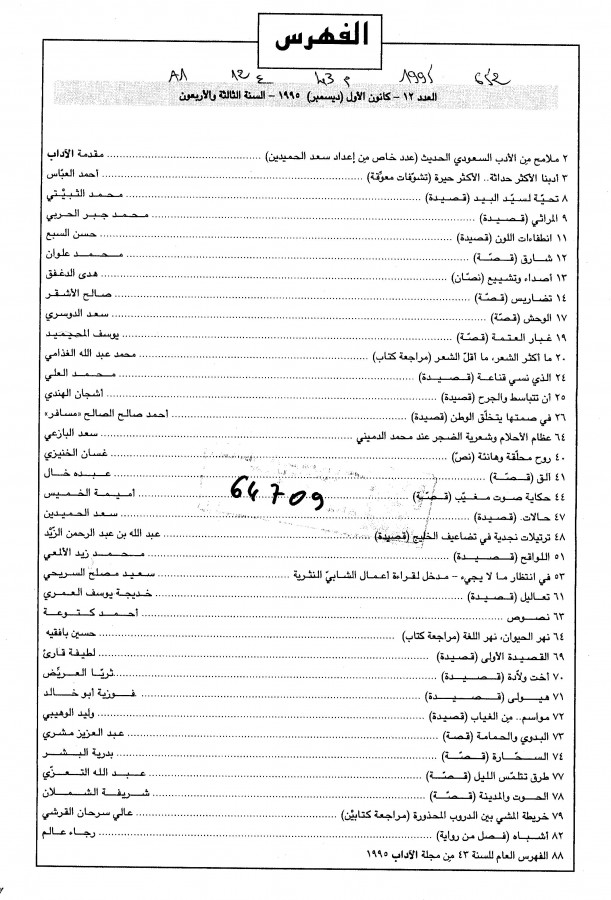 الفهرس
A1 12 ع 43 م 1995 652
العدد ١٢ - كانون الأول (ديسمبر) ١٩٩٥ - السنة الثالثة والأربعون
٢ ملامح من الأدب السعودي الحديث (عدد خاص من إعداد سعد الحميدين) مقدمة الآداب
٣ أدبنا الأكثر حداثة.. الأكثر حيرة (تشوّفات معوّقة) أحمد العبّاس
٨ تحيّة لسيّد البيد (قصيدة) محمد الثبيّتي
٩ المراثي (قصيدة) محمد جبر الحربي
١١ انطفاءات اللون (قصيدة) حسن السبع
١٢ شارق (قصّة) محمد علوان
١٣ أصداء وتشييع (نصّان) هدى الدغفق
١٤ تضاريس (قصّة) صالح الأشقر
١٧ الوحش (قصّة) سعد الدوسري
١٩ غبار العتمة (قصّة) يوسف المحيميد
٢٠ ما أكثر الشعر، ما أقلّ الشعر (مراجعة كتاب) محمد عبد الله الغذامي
٢٤ الذي نسي قناعة (قصيدة) محمد العلي
٢٥ أن تتباسط والجرح (قصيدة) أشجان الهندي
٢٦ في صمتها يتخلّق الوطن (قصيدة) أحمد صالح الصالح «مسافر»
٦٤ عظام الأحلام وشعرية الضجر عند محمد الدميني سعد البازعي
٤٠ روح محلّقة وهانئة (نصّ) غسان الخنيزي
٤١ الق (قصّة) عبده خال
٤٤ حكاية صوت مغيّب (قصّة) أميمة الخميس
64709
٤٧ حالات. (قصيدة) سعد الحميدين
٤٨ ترتيلات نجدية في تضاعيف الخليج (قصيدة) عبد الله بن عبد الرحمن الزّيد
٥١ اللواقح (قصيدة) محمد زيد الألمعي
٥٣ في انتظار ما لا يجيء - مدخل لقراءة أعمال الشابيّ النثرية سعيد مصلح السريحي
٦١ تعاليل (قصيدة) خديجة يوسف العمري
٦٣ نصوص أحمد كتوعة
٦٤ نهر الحيوان، نهر اللغة (مراجعة كتاب) حسين بافقيه
٦٩ القصيدة الأولى (قصيدة) لطيفة قارئ
٧٠ أخت ولاّدة (قصيدة) ثريّا العريّض
٧١ هيولى (قصيدة) فوزية أبو خالد
٧٢ مواسم.. من الغياب (قصيدة) وليد الوهيبي
٧٣ البدوي والحمامة (قصة) عبد العزيز مشري
٧٤ السحّارة (قصّة) بدرية البشر
٧٧ طرق تتلمّس الليل (قصّة) عبد الله التعزّي
٧٨ الحوت والمدينة (قصّة) شريفة الشملان
٧٩ خريطة المشي بين الدروب المحذورة (مراجعة كتابيْن) عالي سرحان القرشي
٨٢ أشباه (فصل من رواية) رجاء عالم
٨٨ الفهرس العام للسنة ٤٣ من مجلة الآداب ١٩٩٥